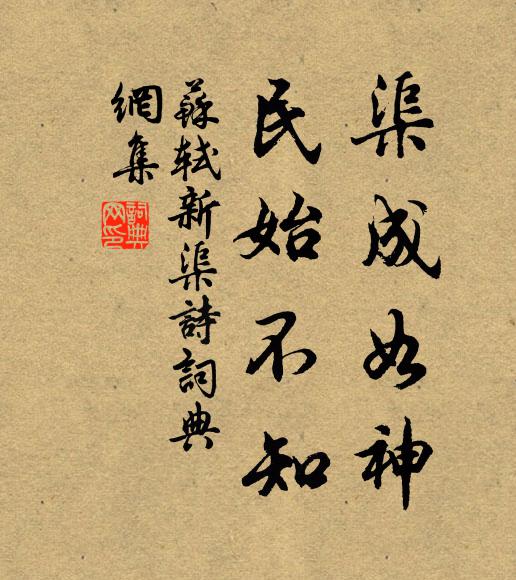 渠成如神
民始不知
蘇軾新渠詩詞典
網集
詞典
网印